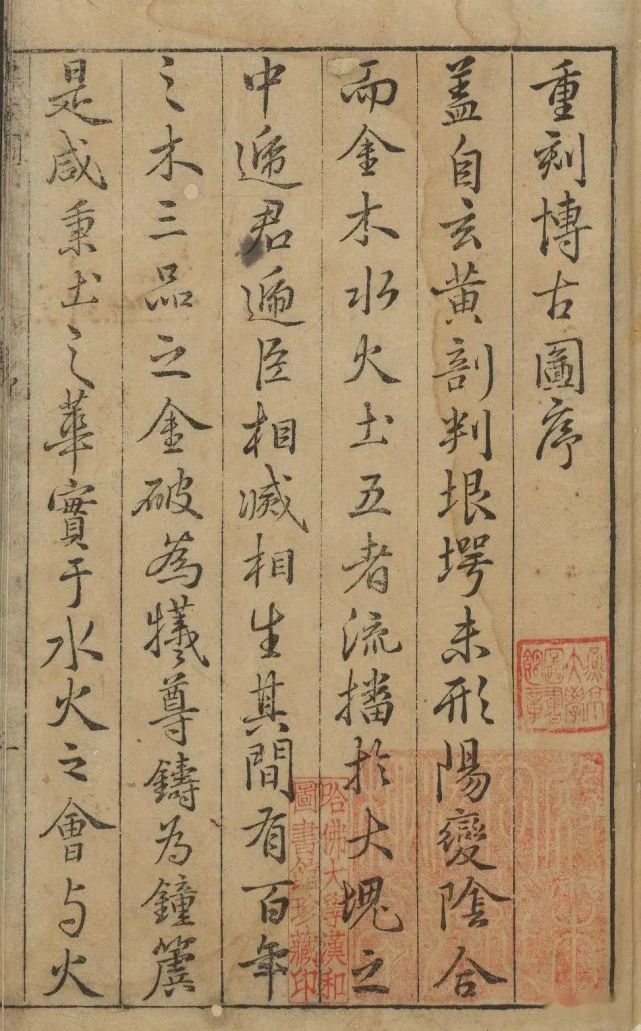 重刻博古圖序
蓋自玄黃剖判垠堮未形陽變陰合
而金木水火土五者流播於大塊之
中遞君遞臣相滅相生其間有百年
之木三品之金破為犧尊鑄為鐘簴
是咸秉土之華實于水火之會与火
哈佛大學漢和
圖書館珍藏印